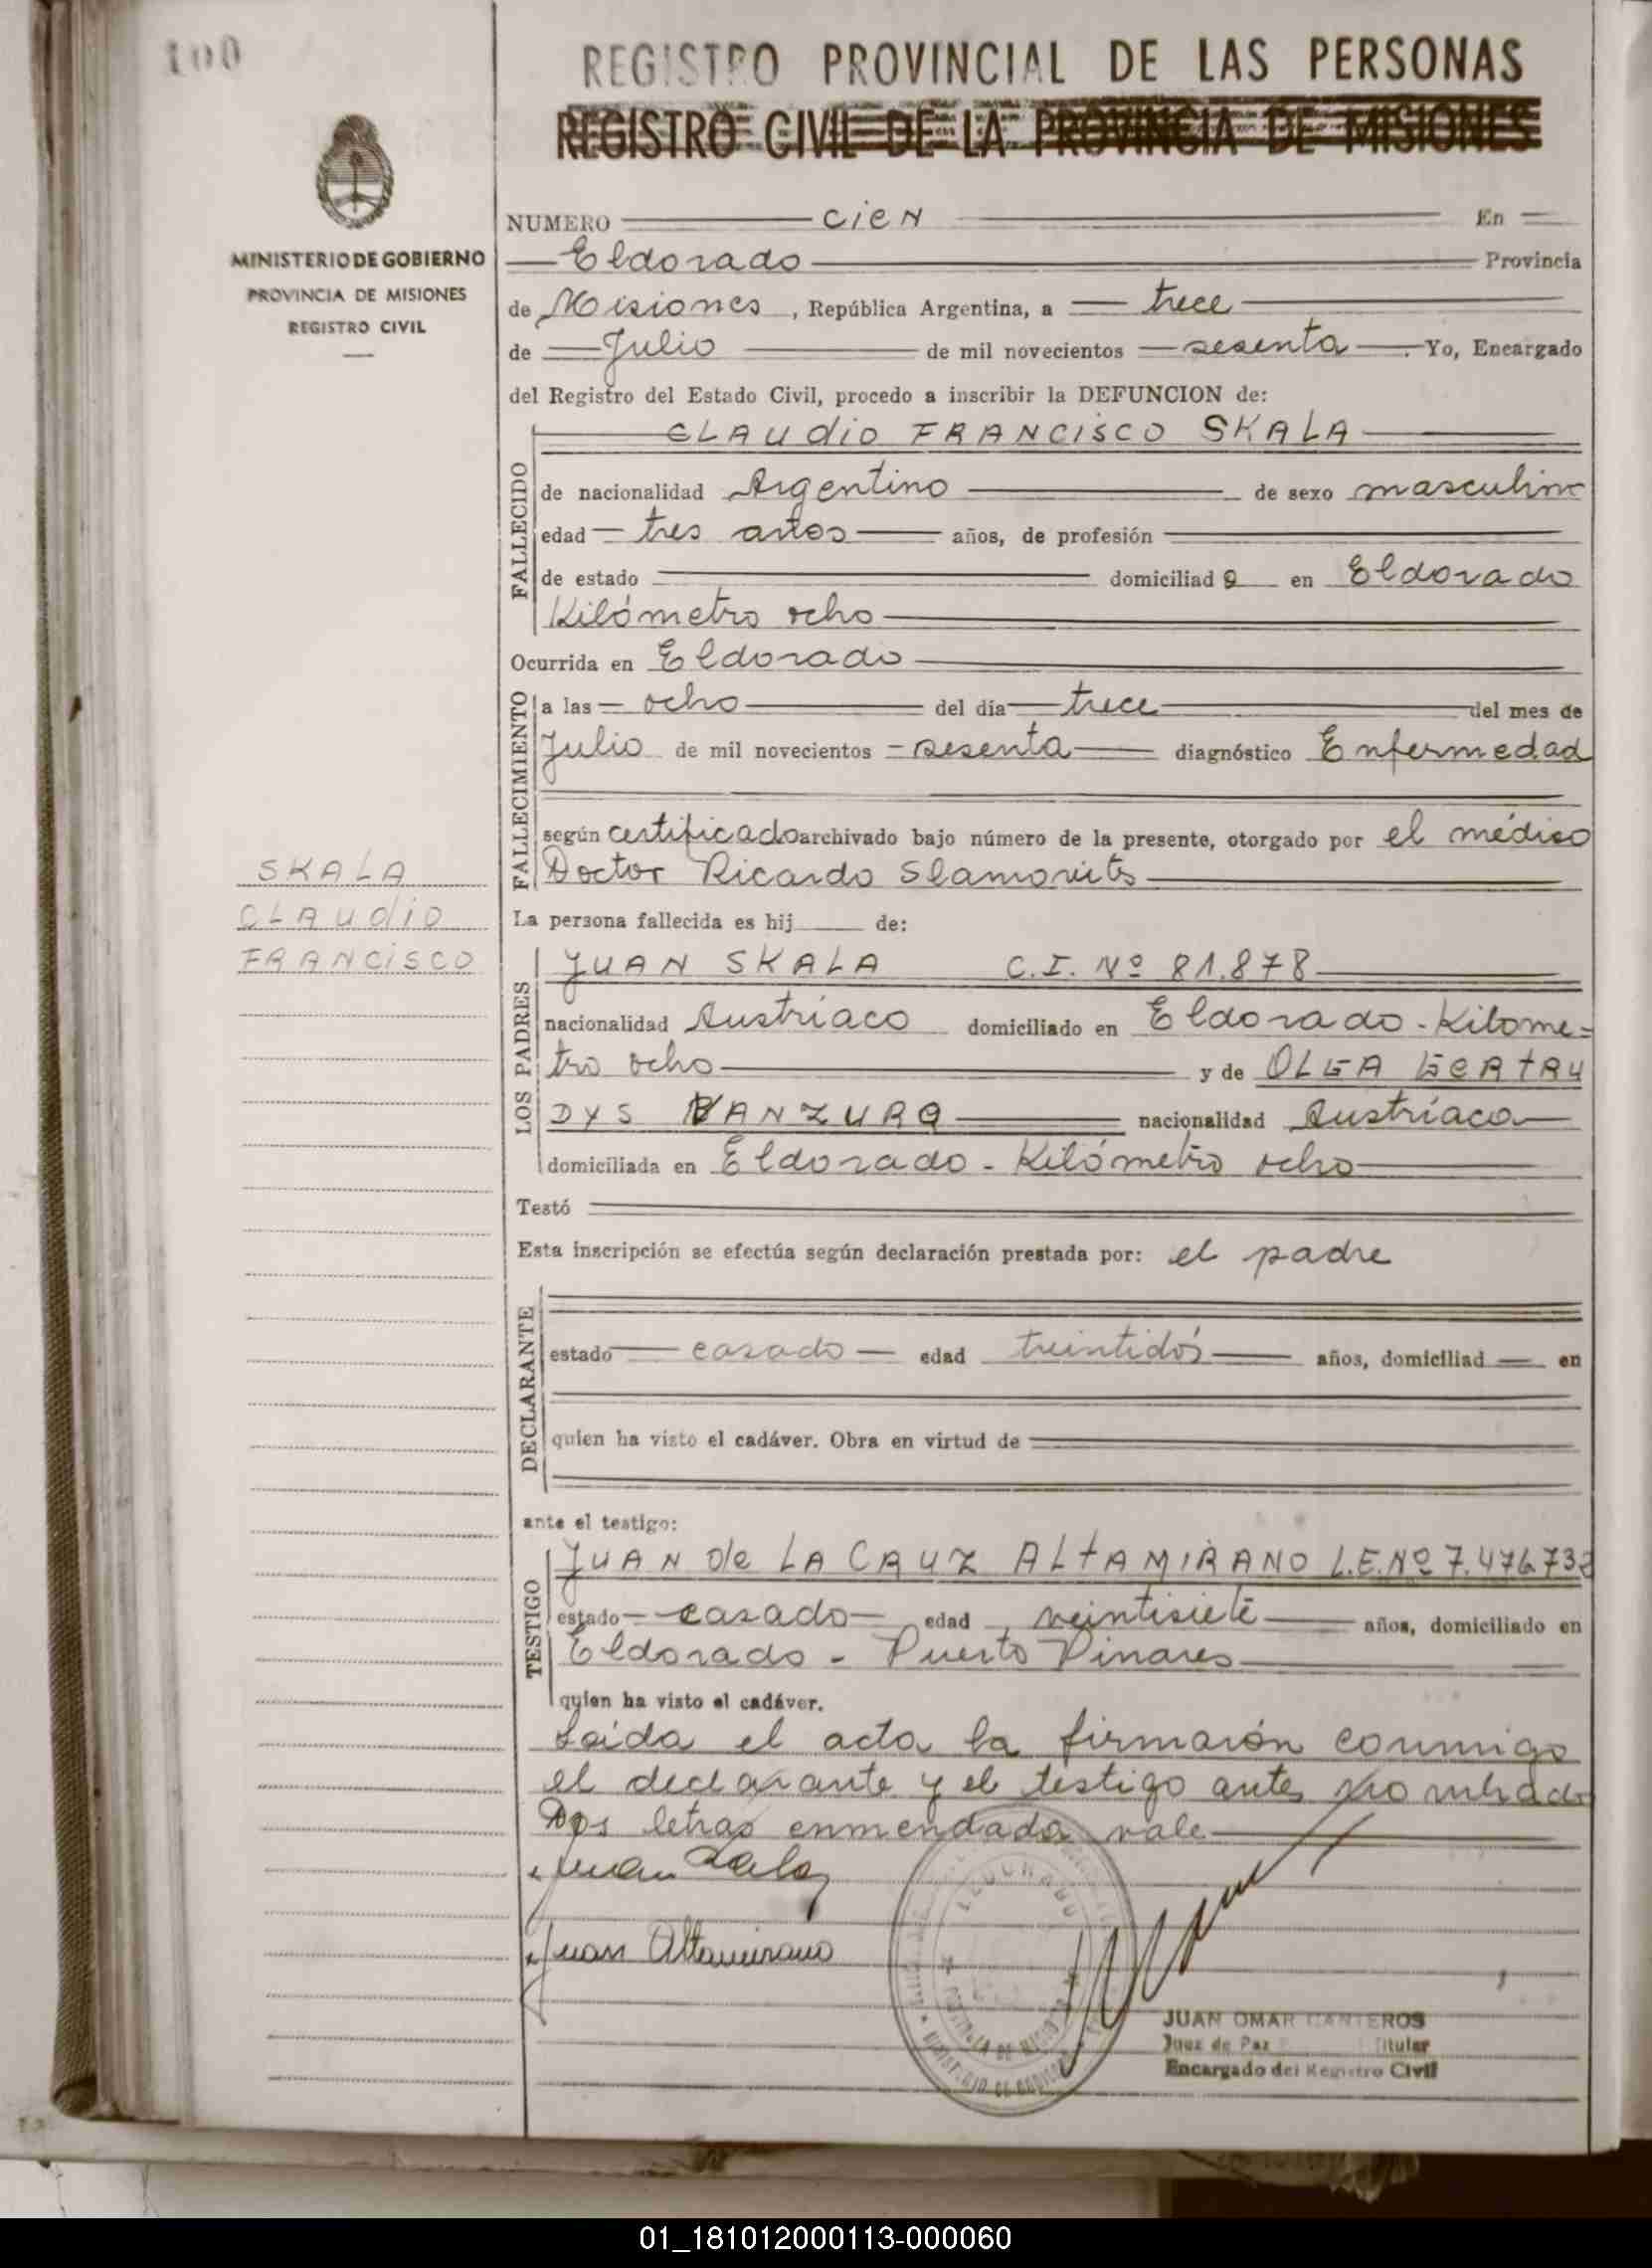 100
REGISTRO PROVINCIAL DE LAS PERSONAS
REGISTRO CIVIL DE LA PROVINCIA DE MISIONES
MINISTERIO DE GOBIERNO
PROVINCIA DE MISIONES
REGISTRO CIVIL
SKALA
CLAUdio
FRANCiSCO
NUMERO cieN En
Eldorado Provincia
de Misiones, República Argentina, a trece
de Julio de mil novecientos sesenta. Yo, Encargado
del Registro del Estado Civil, procedo a inscribir la DEFUNCION de:
CLAUdio FRANCiSCO SKALA
FALLECIDO
de nacionalidad Argentino de sexo masculino
edad tres años años, de profesión
de estado domiciliado en Eldorado
Kilómetro ocho
Ocurrida en Eldorado
FALLECIMIENTO
a las ocho del día trece del mes de
Julio de mil novecientos sesenta diagnóstico Enfermedad
según certificado archivado bajo número de la presente, otorgado por el médico
Doctor Ricardo
La persona fallecida es hij de:
LOS PADRES
JUAN SKALA C.I. Nº 81.878
nacionalidad Austríaco domiciliado en Eldorado - Kilome=
tro ocho y de OLGA GERTRU
DYS VANZURA nacionalidad Austríaca
domiciliada en Eldorado - Kilómetro ocho
Testó
Esta inscripción se efectúa según declaración prestada por: el padre
DECLARANTE
estado casado edad treintidós años, domiciliad en
quien ha visto el cadáver. Obra en virtud de
ante el testigo:
TESTIGO
JUAN de LA CRUZ ALtAMIRANO L.E.Nº 7.476.732
estado casado edad veintisiete años, domiciliado en
Eldorado - Puerto Pinares
quien ha visto el cadáver.
Leída el acta la firmarón conmigo
el declarante y el testigo antes nombrado
Dos letras enmendada vale
Juan Skala
Juan Altamirano
ELDORADO
JUAN OMAR CANTEROS
Juez de Paz Titular
Encargado del Registro Civil
01_181012000113-000060